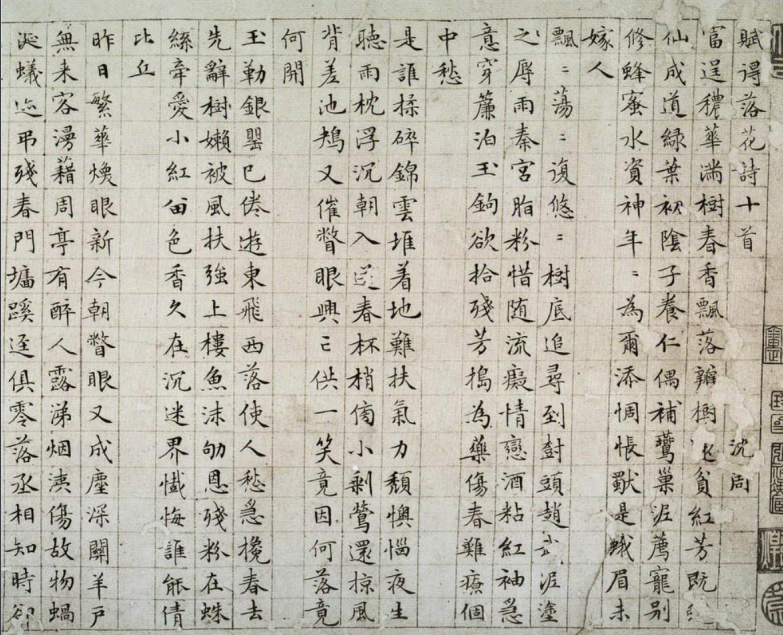 賦得落花詩十首
沈周
富逞穠華滿樹春香飄落瓣樹逃貧紅芳既
仙成道綠葉初陰子養仁偶補鶯巢泥薦寵別
修蜂蜜水資神年〻為爾添惆悵獨是蛾眉未
嫁人
飄〻蕩〻復悠〻樹底追尋到樹頭趙武泥塗
之辱雨秦宮脂粉惜随流癡情戀酒粘紅袖急
意穿簾泊玉鉤欲拾殘芳搗為藥傷春難療個
中愁
是誰揉碎錦雲堆着地難扶氣力頹懊惱夜生
聽雨枕浮沉朝入送春杯梢傍小剩鶯還掠風
背差池鴂又催瞥眼興亡供一笑竟因何落竟
何開
玉勒銀罌已倦遊東飛西落使人愁急攙春去
先辭樹嬾被風扶強上樓魚沫劬恩殘粉在蛛
絲牽愛小紅留色香久在沉迷界懺悔誰能倩
比丘
昨日繁華煥眼新今朝瞥眼又成塵深關羊戶
無来客漫藉周亭有醉人露涕烟洟傷故物蝸
涎蟻迹弔殘春門墻蹊逕俱零落丞相知時卻